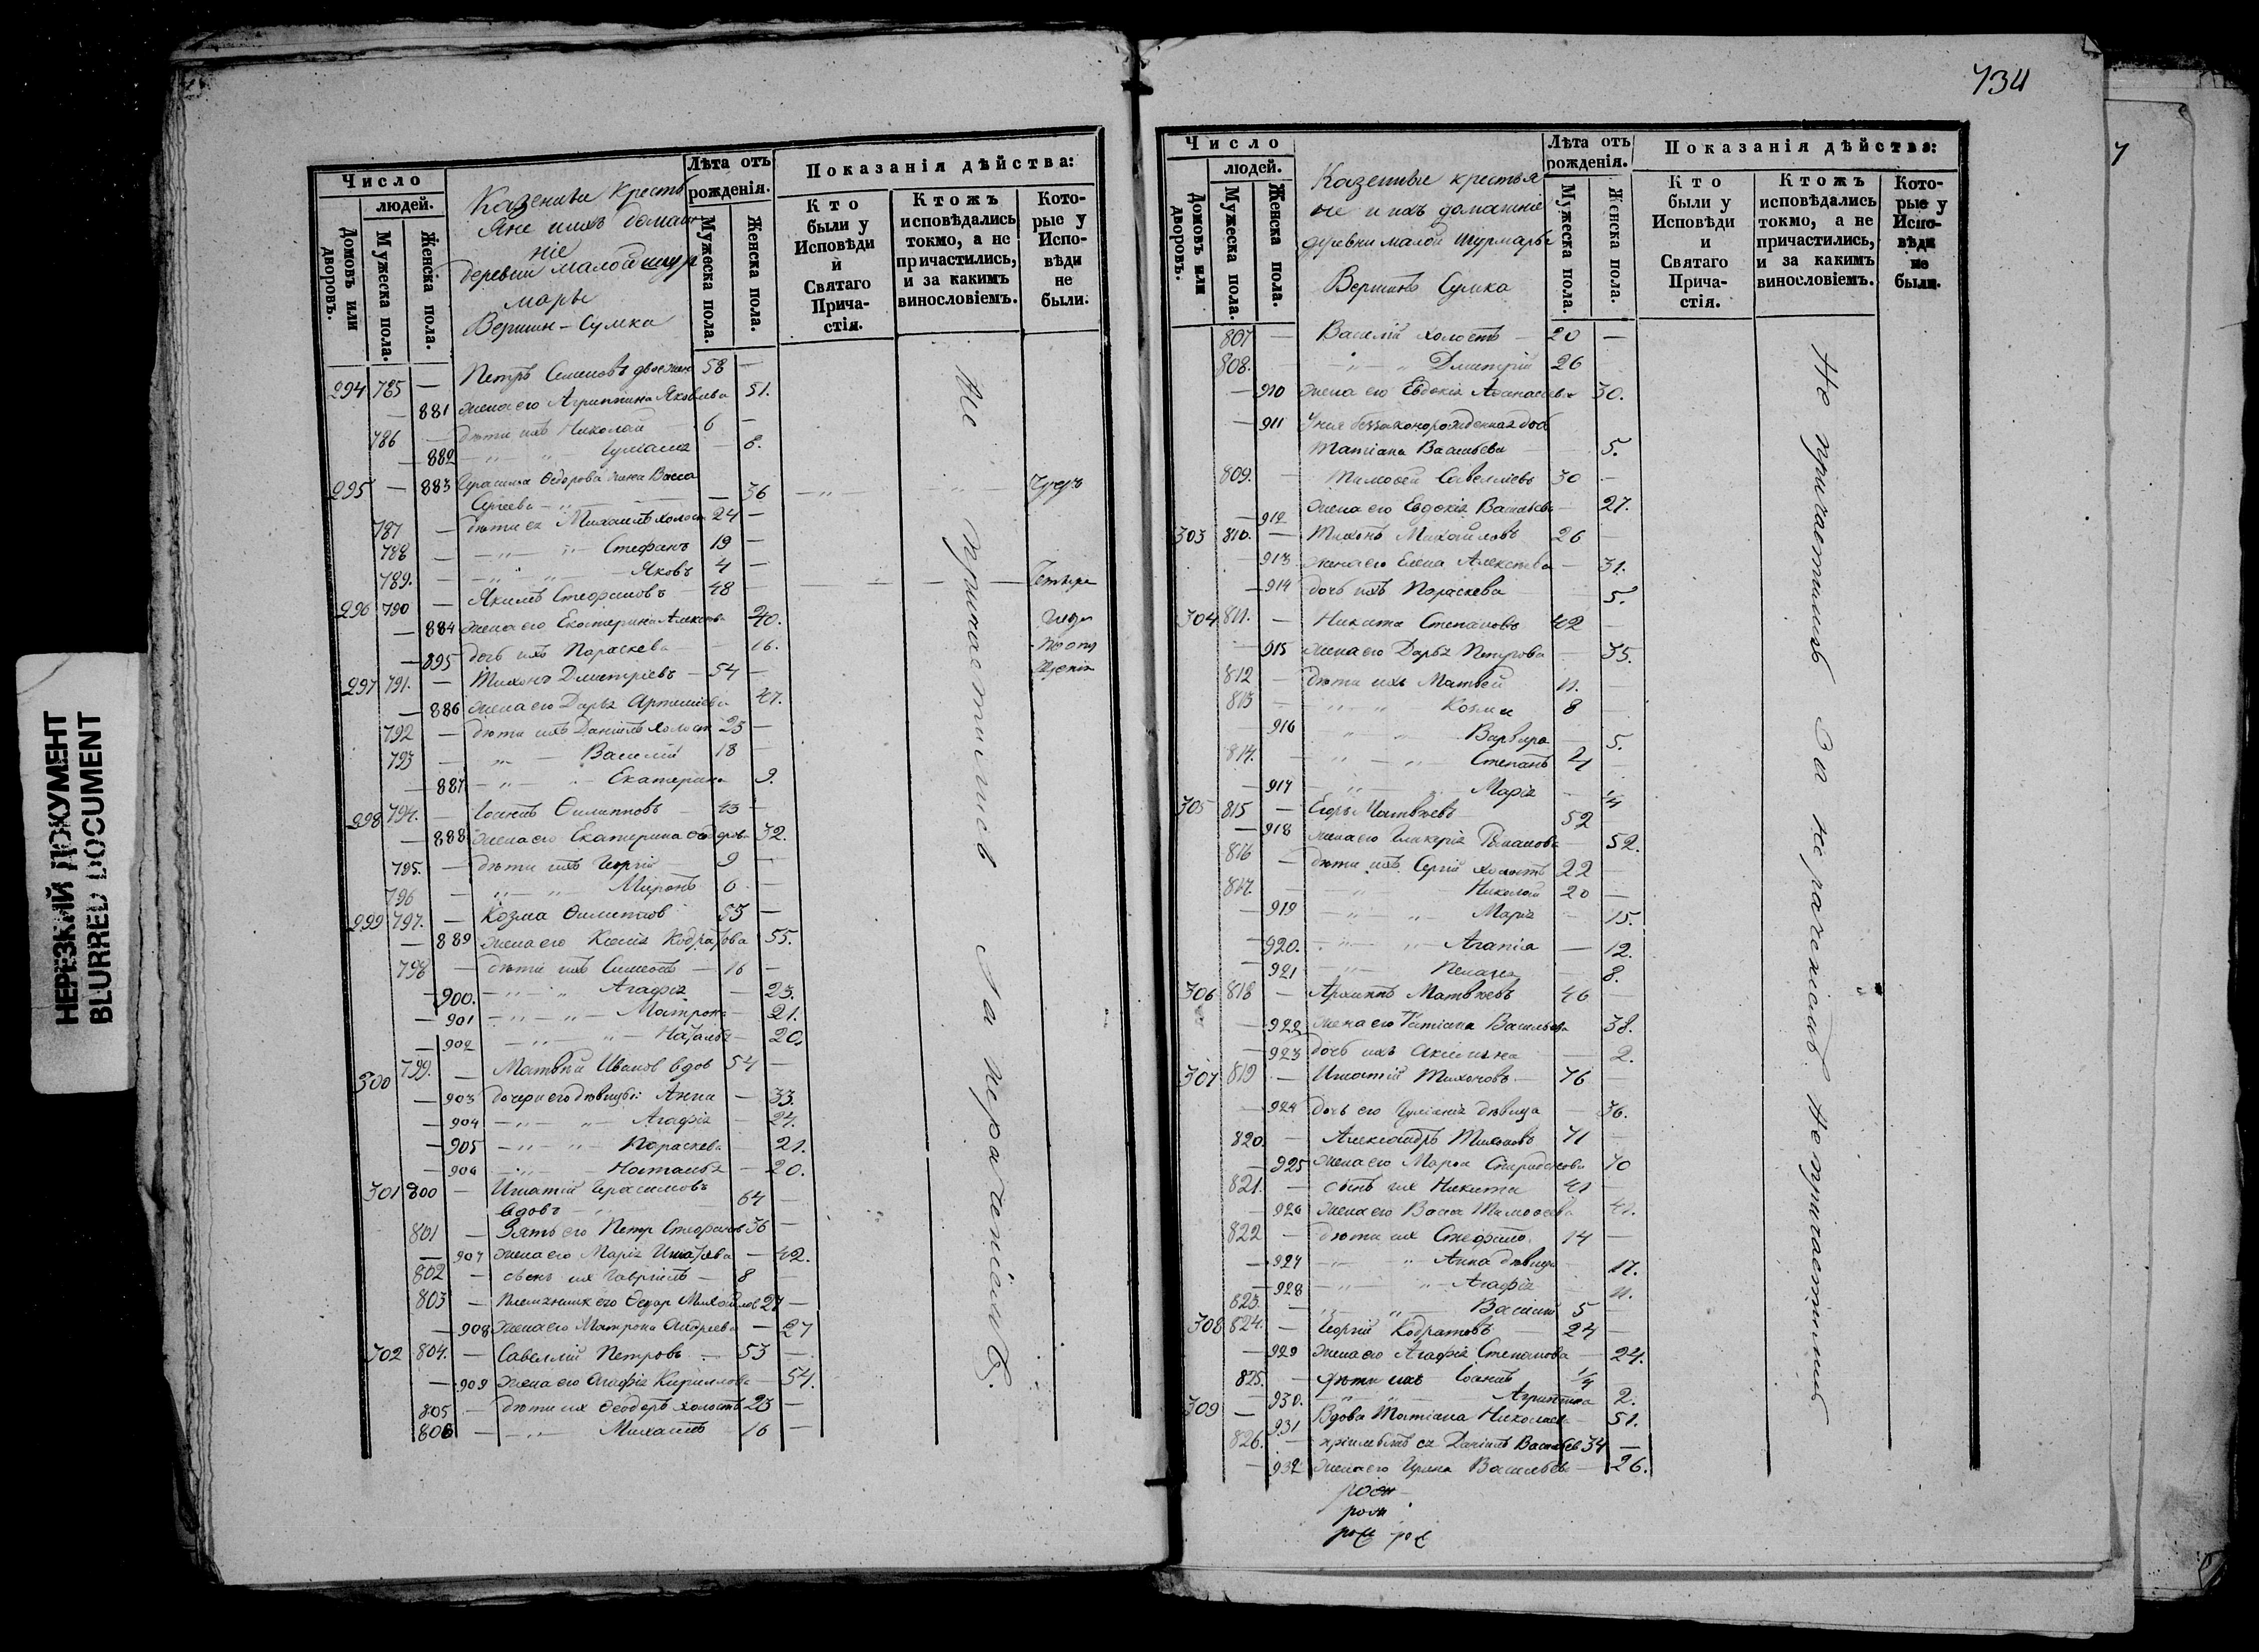 НЕРЕЗКИЙ ДОКУМЕНТ
BLURRED DOCUMENT
Число
людей.
Домовъ или дворовъ.
Мужеска пола.
Женска пола.
Казенные крестья
деревни малой шур
Вершин-Сумка
Лѣта отъ рожденія.
Мужеска пола.
Женска пола.
Показанія дѣйства:
Кто были у Исповѣди и Святаго Причастія.
Ктожъ исповѣдались токмо, а не причастились, и за какимъ винословіемъ.
Которые у Исповѣди не были.
294 785 — Петръ Семеновъ 58 —
— 881 жена его Агриппина Яковлева 51.
786 — дѣти ихъ Николай 6 —
— 882 — 8.
295 — 883 Ѳедорова жена Васса
Сергеева — 36
787 — дѣти ея Михаилъ холост 24 —
788 — Стефанъ 19 —
789. — Яковъ 4 —
296 790 — Якимъ Стефановъ 48 —
— 884 жена его Екатерина 40.
— 895 дочь ихъ Параскева — 16.
297 791. — Тихонъ Дмитріевъ — 54 —
— 886 жена его Дарья 47.
792 — дѣти ихъ Даніилъ холост 23 —
793 — Василій 18 —
— 887 — Екатерина 9.
298 794. — Филипповъ 43 —
— 888 жена его Екатерина 32.
795. — дѣти ихъ Георгій 9 —
796 — Миронъ 6 —
299 797. — Козма 53 —
— 889 жена его Кодратова 55.
798 — дѣти ихъ Симеонъ — 16 —
— 900. — Агафія — 23.
— 901 — Матрона 21.
— 902 — Наталья 20.
300 799. — Матвѣй Иванов вдов 54 —
— 903 дочери его дѣвицы: Анна — 33.
— 904 — Агафія — 24.
— 905 — Параскева 21.
— 906 — Наталья — 20.
301 800 — Игнатій Герасимовъ
вдовъ 64 —
801 — Зять его Петр Стефанов 36 —
— 907 жена его Марія — 42.
802 — сынъ их Гавріилъ — 8
803 — племянник его Ѳедор Михайлов 27 —
— 908 жена его Матрона Андреева — 27
302 804. — Савеллій Петровъ — 53 —
— 909 жена его Агафія Кириллова — 54.
805 — дѣти их Ѳеодоръ холостъ 23 —
806 — Михаилъ 16 —
Не причастились За нераченіемъ
734
Число
людей.
Домовъ или дворовъ.
Мужеска пола.
Женска пола.
Казенные крестья
не и ихъ домашніе
деревни малой Шурмары
Вершинъ Сумка
Лѣта отъ рожденія.
Мужеска пола.
Женска пола.
Показанія дѣйства:
Кто были у Исповѣди и Святаго Причастія.
Ктожъ исповѣдались токмо, а не причастились, и за какимъ винословіемъ.
Которые у Исповѣди не были.
807 — Василій холостъ — 20 —
808. — Дмитрій 26
— 910 жена его Евдокія Афанасьева 30.
— 911 незаконорожденная
Татіана Васильева 5.
809. — Тимофей Савелліевъ 30 —
— 912 жена его Евдокія Васильева — 27.
303 810. — Тихонъ Михайловъ 26
— 913 жена его Елена Алексѣева — 31.
— 914 дочь ихъ Параскева 5.
304 811. — Никита Степановъ 42
— 915 жена его Дарья Петрова — 35.
812 — дѣти ихъ Матвей 11.
813 — Козма 8
— 916 Варвара 5.
814. — Степанъ 4
— 917 Марія 1/4
305 815 — Егоръ Матвѣевъ 52
— 918 жена его Гликерія Романова 52.
816 — дѣти ихъ Сергій холостъ 22
817. — Николай 20 —
— 919 — Марія 15.
— 920. — Агапія — 12.
— 921 — Пелагея 8.
306 818 — Архиппъ Матвѣевъ 46
— 922 жена его Татіана Васильева 38.
— 923 дочь ихъ Акилина 2.
307 819 — Игнатій Тихоновъ 76
— 924 дочь его дѣвица 36.
820. — Александръ Тихоновъ 71
— 925 жена его Марфа Спиридонова 70
821. — сынъ их Никита 41
— 926 жена его Васса Тимофеева 41.
822 — дѣти их Стефанъ 14 —
— 927 — Анна дѣвица 17.
— 928 — Агафія 11.
823. — Василий 5 —
308 824. — Георгій Кодратовъ — 24 —
— 929 жена его Агафія Степанова — 24.
825. — дѣти ихъ Іоаннъ 1/4
— 930. — Агриппина 2.
309 — 931 Вдова Татіана Николаева — 51.
826. — ея Даніилъ Васильев 34 —
— 932 жена его Ирина Васильева — 26.
Не причастились За нераченіемъ Не причастились